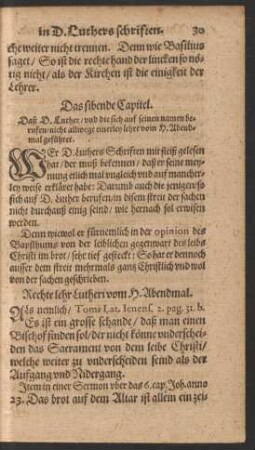 in D. Luthers schriften. 30
che weiter nicht trennen. Denn wie Basilius
saget / So ist die rechte hand der lincken so nö-
tig nicht / als der Kirchen ist die einigkeit der
Lehrer.
Das sibende Capitel.
Daß D. Luther / vnd die sich auf seinen namen be-
rufen nicht allwege einerley lehre vom H. Abend-
mal geführet.
WEr D. Luthers Schriften mit fleiß gelesen
hat / der muß bekennen / daß er seine mey-
nung etlich mal vngleich vnd auf mancher-
ley weise erkläret habe: Darumb auch die jenigen so
sich auf D. Luther berufen / in disem streit der sachen
nicht durchauß einig seind / wie hernach sol erwisen
werden.
Denn wiewol er fürnemlich in der opinion des
Bapsthums von der leiblichen gegenwart des leibs
Christi im brot / sehr tief gesteckt: So hat er dennoch
ausser dem streit mehrmals gantz Christlich vnd wol
von der sachen geschrieben.
Rechte lehr Lutheri vom H. Abendmal.
Als nemlich / Tomo I. at. Ienens. 2. pag. 31. b.
Es ist ein grosse schande / daß man einen
Bischof finden sol / der nicht könne vnderschei-
den das Sacrament von dem leibe Christi /
welche weiter zu vnderscheiden seind als der
Aufgang vnd Nidergang.
Item in einer Sermon vber das 6. cap. Joh. anno
23. Das brot auf dem Altar ist allein ein zei-